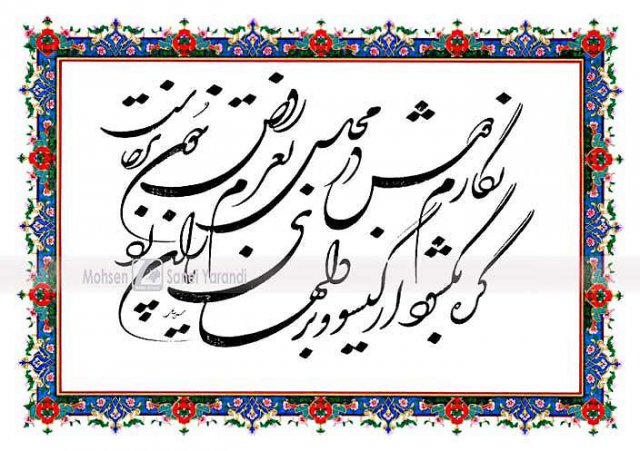 نگارم دوش در مجلس بعزم رقص چون برخاست
گره بگشود از گیسو و بر دلهای یاران زد
Mohsen Yarandi